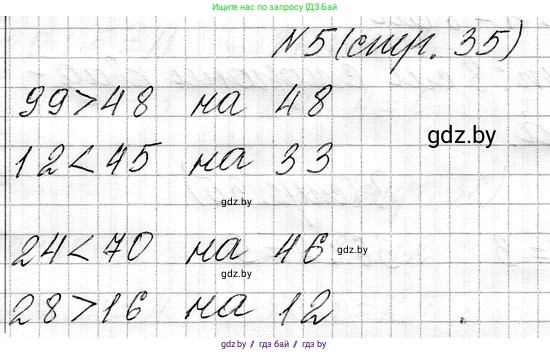 Не ищи по запросу ГДЗ Бай
N5 (стр. 35)
99>48 на 48
gdz.by
12<45 на 33
gdz.by
24<70 на 46
gdz.by
gdz.by
28>16 на 12
gdz.by / гдз бай / gdz by